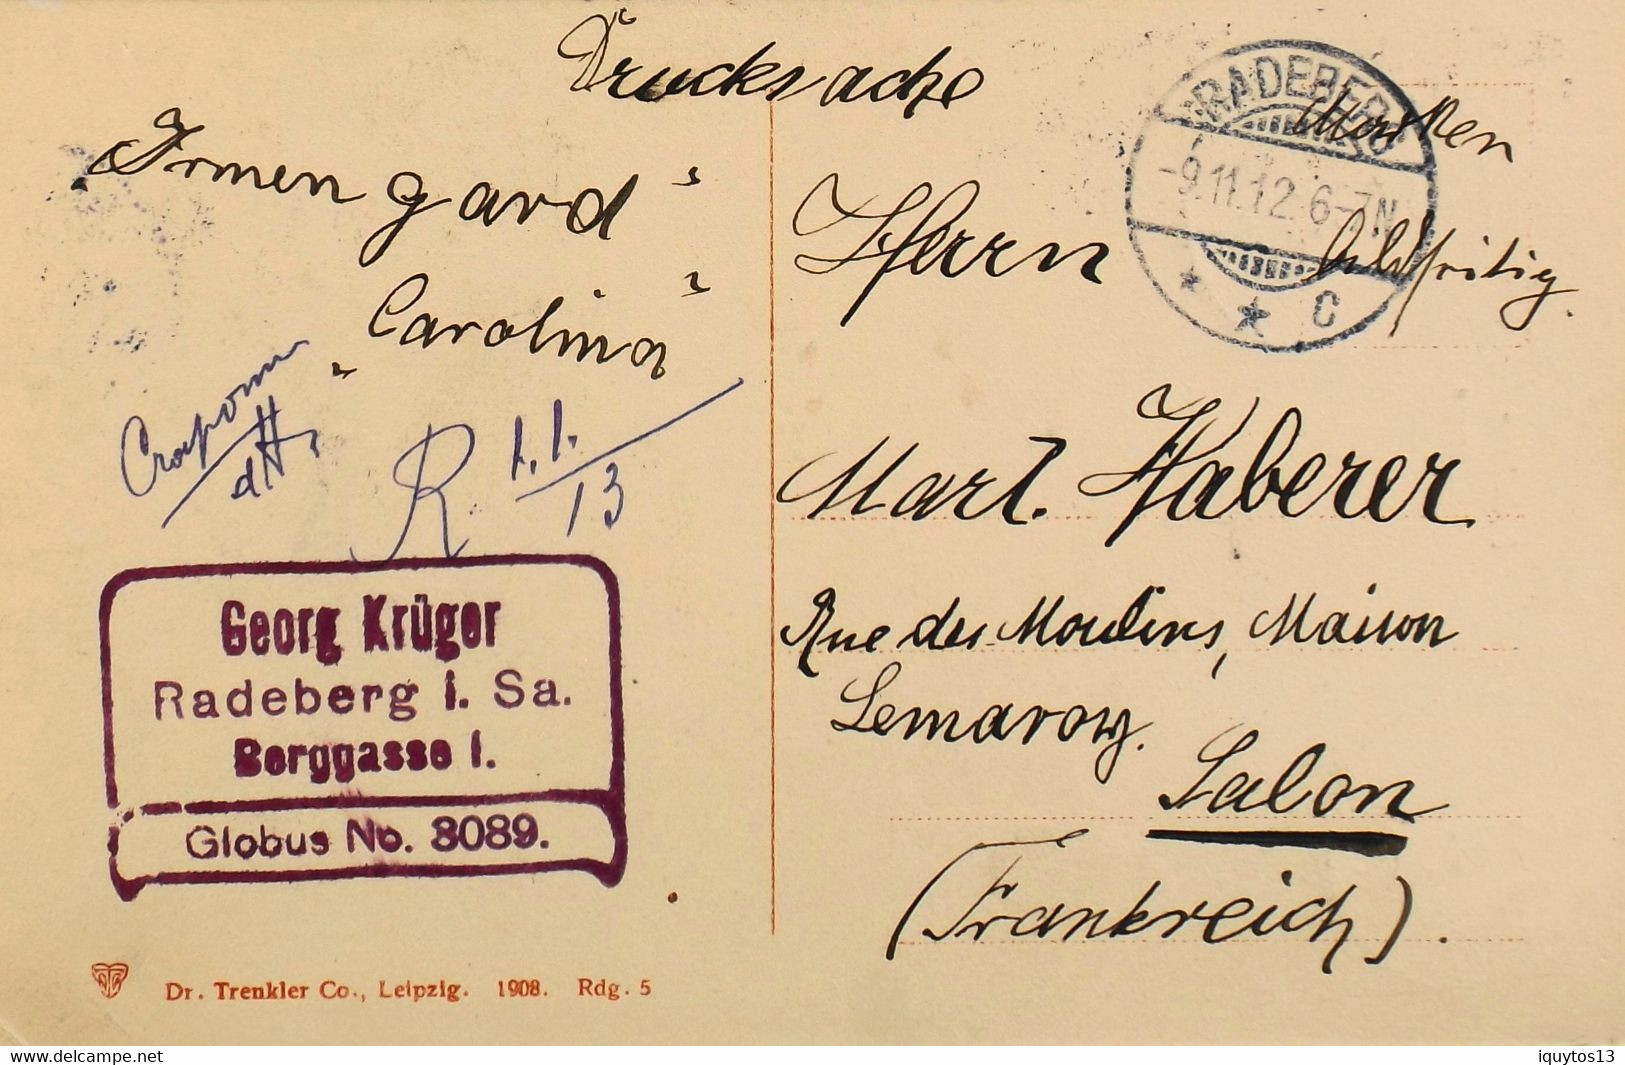 Drucksache
"Irmengard"
"Carolina"
R. 1.1./13
Georg Krüger
Radeberg i. Sa.
Berggasse 1.
Globus No. 8089.
Dr. Trenkler Co., Leipzig. 1908. Rdg. 5
RADEBERG
-9.11.12.6-7N
* * C
Marken
bildseitig.
Herrn
Mart. Haberer
Rue des Moulins, Maison
Lemaroy.
Salon
(Frankreich).
delcampe.net
iquytos13